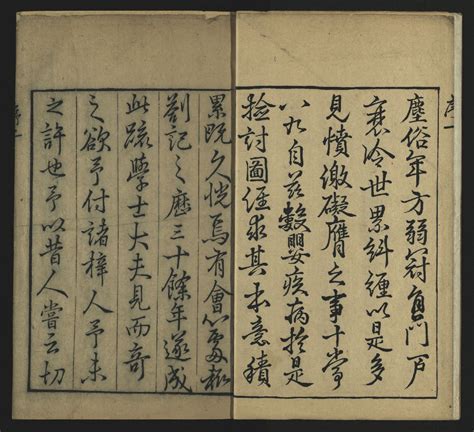 塵俗年方弱冠直門戶
衰冷世累糾纏以是多
見憤激礙膺之事十常
八九自茲數嬰疾病於是
檢討圖經求其本意積
累既久恍焉有會心處輒
劄記之歷三十餘年遂成
此疏學士大夫見而奇
之欲予付諸梓人予未
之許也予以昔人嘗云切